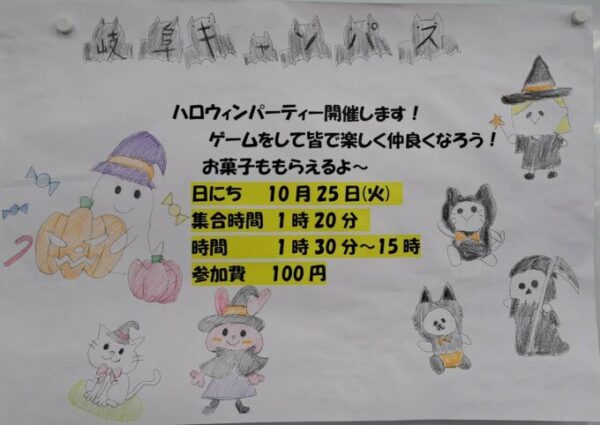 岐阜キャンパス
ハロウィンパーティー開催します!
ゲームをして皆で楽しく仲良くなろう!
お菓子ももらえるよ~
日にち 10月25日(火)
集合時間 1時20分
時間 1時30分~15時
参加費 100円